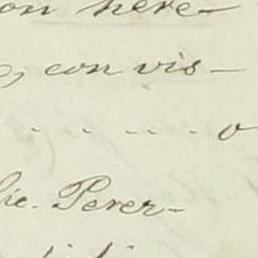 on here-
, con vis-
. . . . . . . o
lie. Perer-